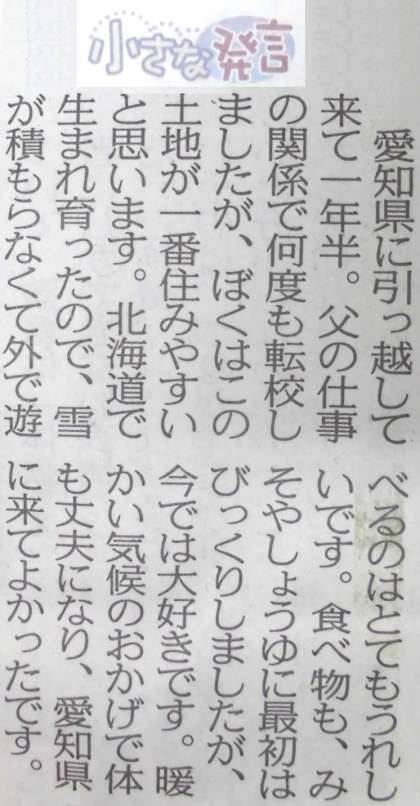 小さな発言
愛知県に引っ越して
来て一年半。父の仕事
の関係で何度も転校し
ましたが、ぼくはこの
土地が一番住みやすい
と思います。北海道で
生まれ育ったので、雪
が積もらなくて外で遊
べるのはとてもうれし
いです。食べ物も、み
そやしょうゆに最初は
びっくりしましたが、
今では大好きです。暖
かい気候のおかげで体
も丈夫になり、愛知県
に来てよかったです。